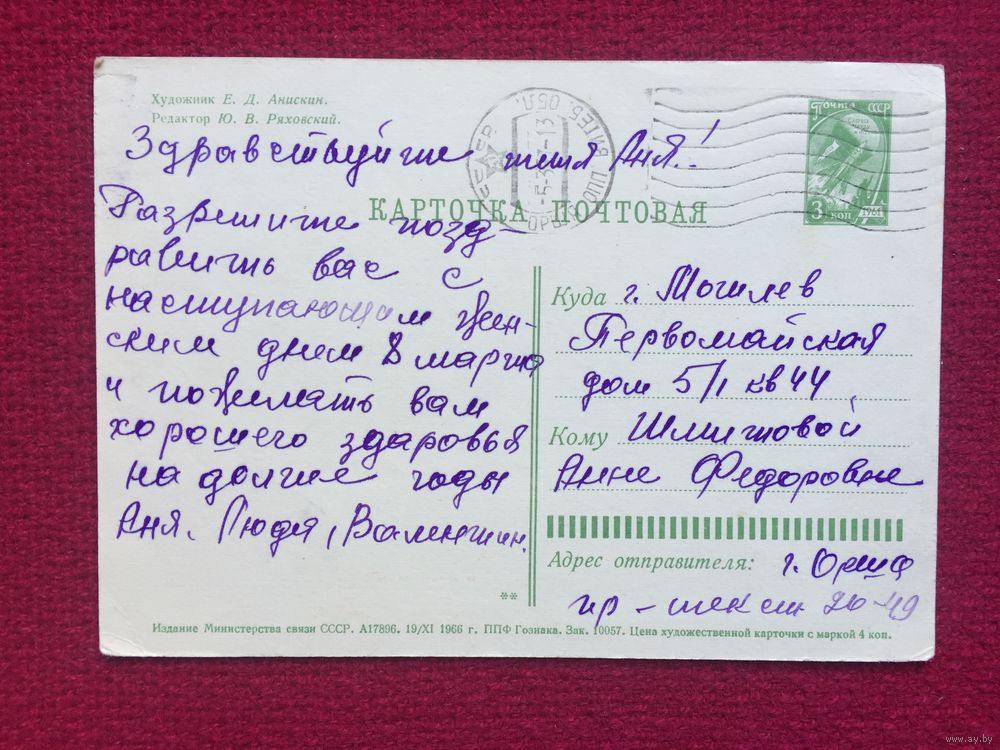 Художник Е. Д. Анискин.
Редактор Ю. В. Ряховский.
Здравствуйте тетя Аня!
КАРТОЧКА ПОЧТОВАЯ
Разрешите позд-
равить вас с
наступающим жен-
ским днем 8 марта
и пожелать вам
хорошего здаровья
на долгие годы
Аня, Люда, Валентин.
ПОЧТА СССР
3 КОП
1961
Куда г. Могилев
Первомайская
дом 5/1 кв 44
Кому Шмитовой
Анне Федоровне
Адрес отправителя: г. Орша
пр-текст 26-49
**
Издание Министерства связи СССР. А17896. 19/XI 1966 г. ППФ Гознака. Зак. 10057. Цена художественной карточки с маркой 4 коп.
www.ay.by